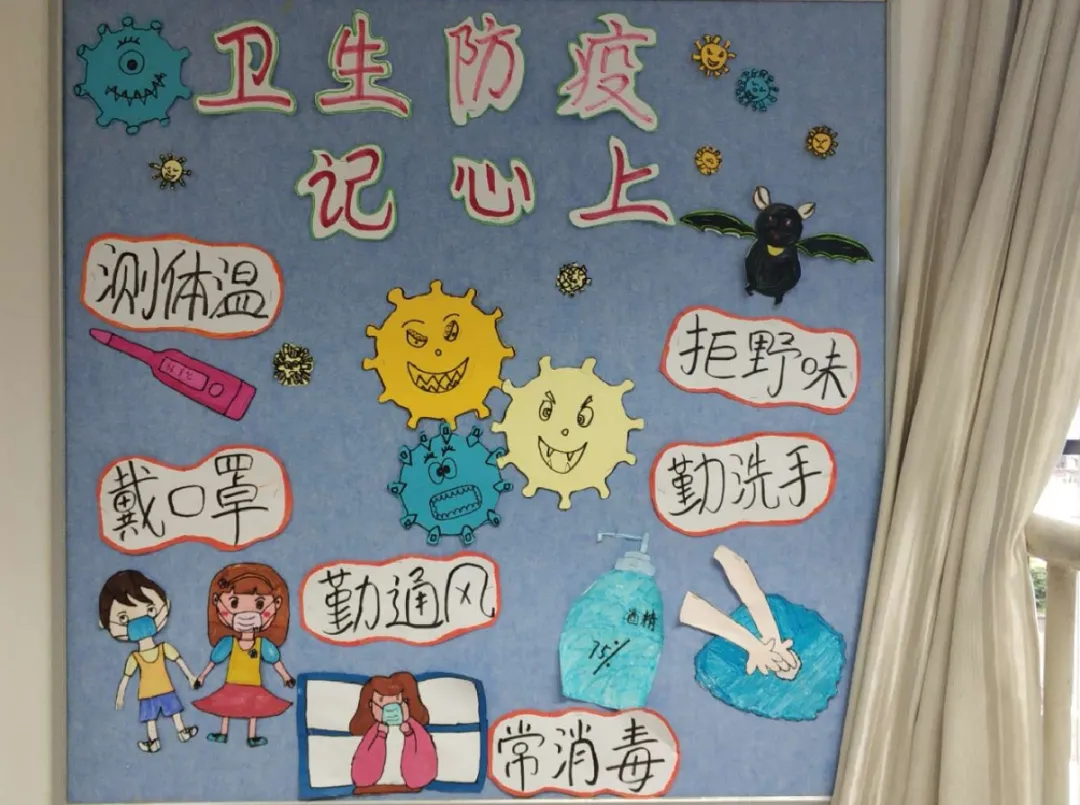 卫生防疫
记心上
测体温
拒野味
戴口罩
勤洗手
勤通风
酒精
75%
常消毒